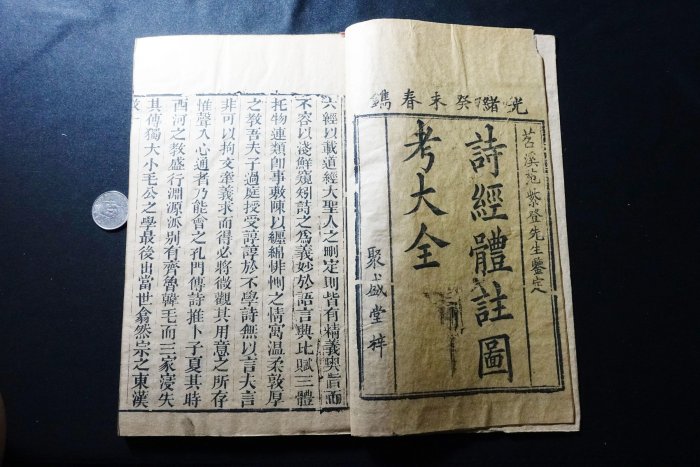 光緒癸未春鐫
苕溪范紫登先生鑒定
詩經體註圖
考大全
聚盛堂梓
六經以載道經大聖人之刪定則皆有精義奧旨而
不容以淺鮮窺矧詩之為義妙於語言興比賦三體
托物連類即事敷陳以纏綿悱惻之情寓温柔敦厚
之教吾夫子過庭授受諄諄於不學詩無以言夫言
非可以拘文牽義求而得必將微觀其用意之所存
惟聲入心通者乃能會之孔門傳詩推卜子夏其時
西河之教盛行淵源派别有齊魯韓毛而三家寖失
其傳獨大小毛公之學最後出當世翕然宗之東漢